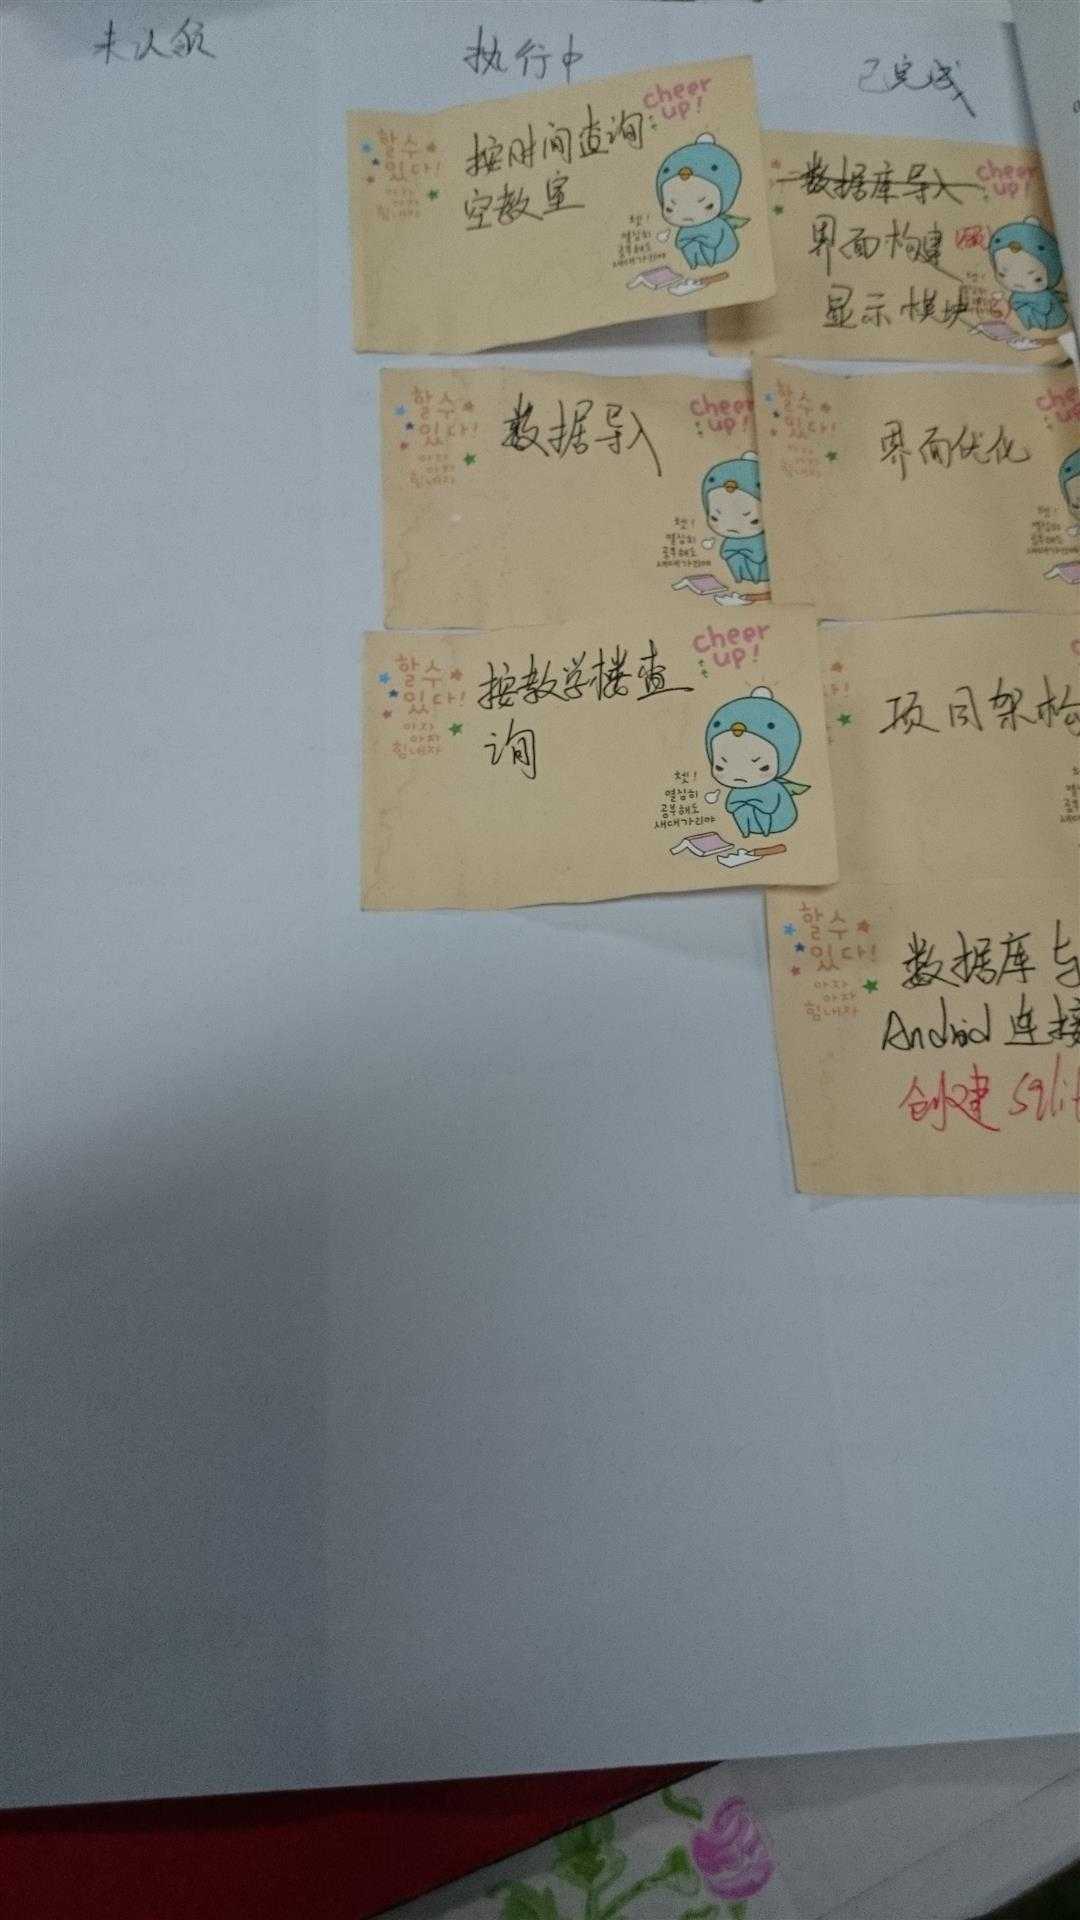 未认领
执行中
已完成
할수
있다!
아자
아자
힘내자
按时间查询
空教室
cheer
up!
쳇!
열심히
공부해도
새대가리야
数据库导入
界面构建
显示模块
cheer
up!
할수
있다!
아자
아자
힘내자
数据导入
cheer
up!
쳇!
열심히
공부해도
새대가리야
할수
있다!
아자
아자
힘내자
界面优化
쳇!
열심히
공부해도
새대가리야
할수
있다!
아자
아자
힘내자
按教学楼查
询
cheer
up!
쳇!
열심히
공부해도
새대가리야
项目架构
할수
있다!
아자
아자
힘내자
数据库与
Android 连接
创建 sqlit